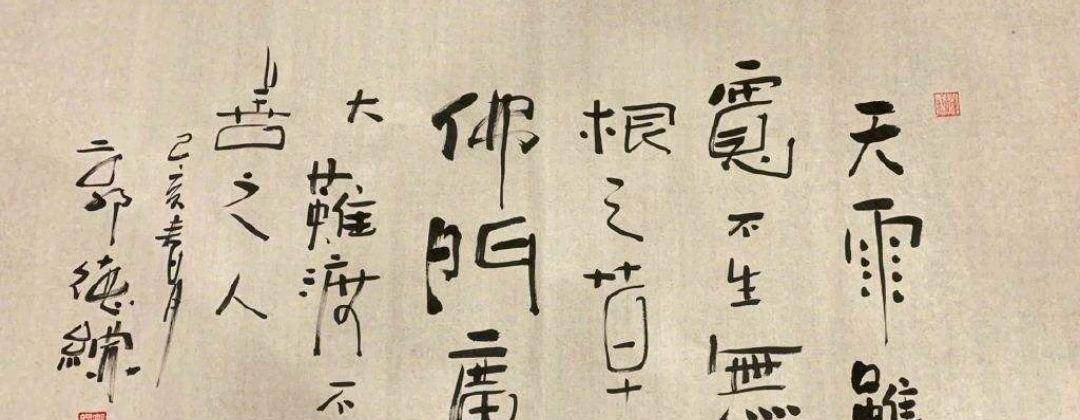 天雨雖
寬不生無
根之草
佛門廣
大難渡不
善之人
己亥春月
郭德綱